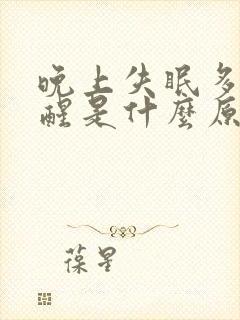 晚上失眠多
醒是什麼原
葆星